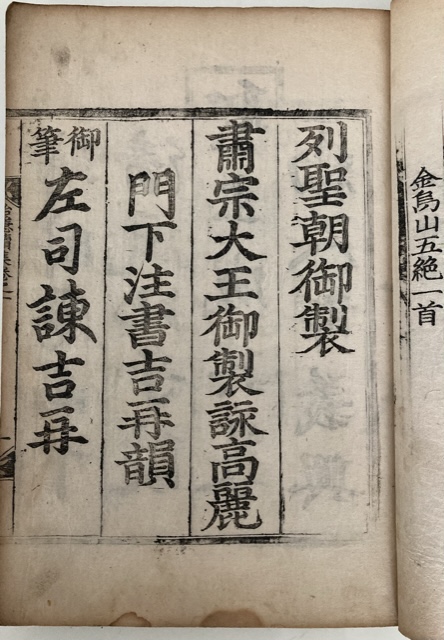 金烏山五絶一首
列聖朝御製
肅宗大王御製詠高麗
門下注書吉再韻
御筆
左司諫吉再